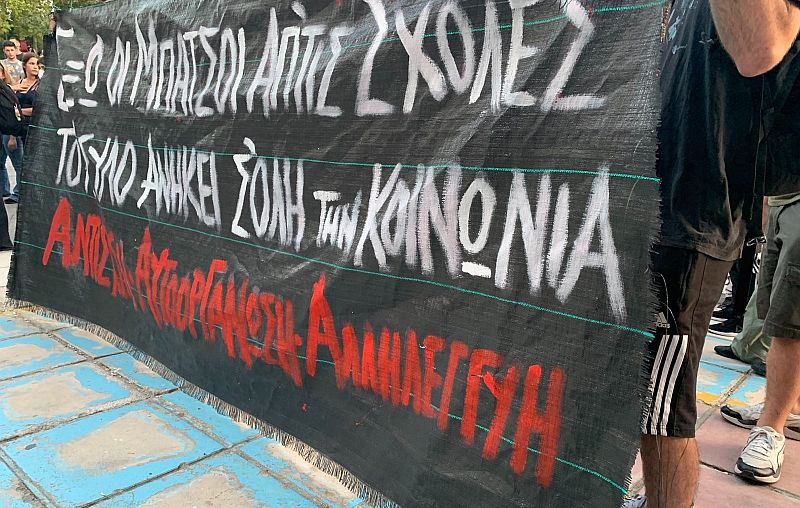 ΕΞΩ ΟΙ ΜΠΑΤΣΟΙ ΑΠ ΤΙΣ ΣΧΟΛΕΣ
ΤΟ ΑΝΗΚΕΙ Σ ΟΛΗ ΤΗΝ ΚΟΙΝΩΝΙΑ
ΑΝΤΙΣΤΑΣΗ ΑΥΤΟΟΡΓΑΝΩΣΗ-ΑΛΛΗΛΕΓΓΥΗ
adidas